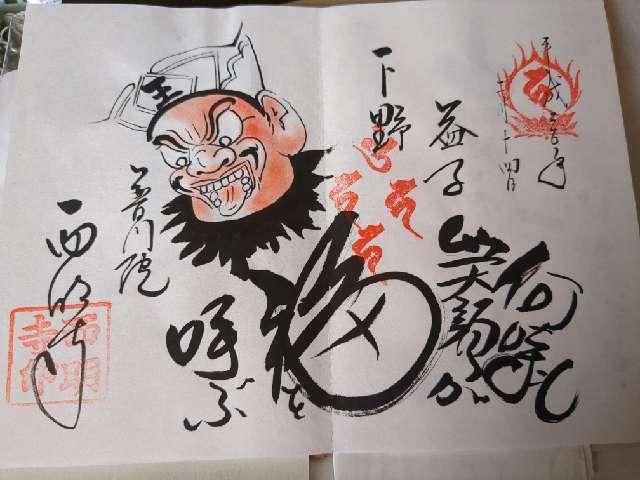 平成三十年
月十四日
何時も
笑顔が
福を
呼ぶ
益子
下野
王
普門院
西明寺
西明
寺印